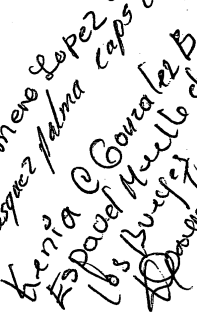 mero Lopez
squez Palma Caps
Kenia C Gonzalez B
Espadel Muelle d
los Bueyes